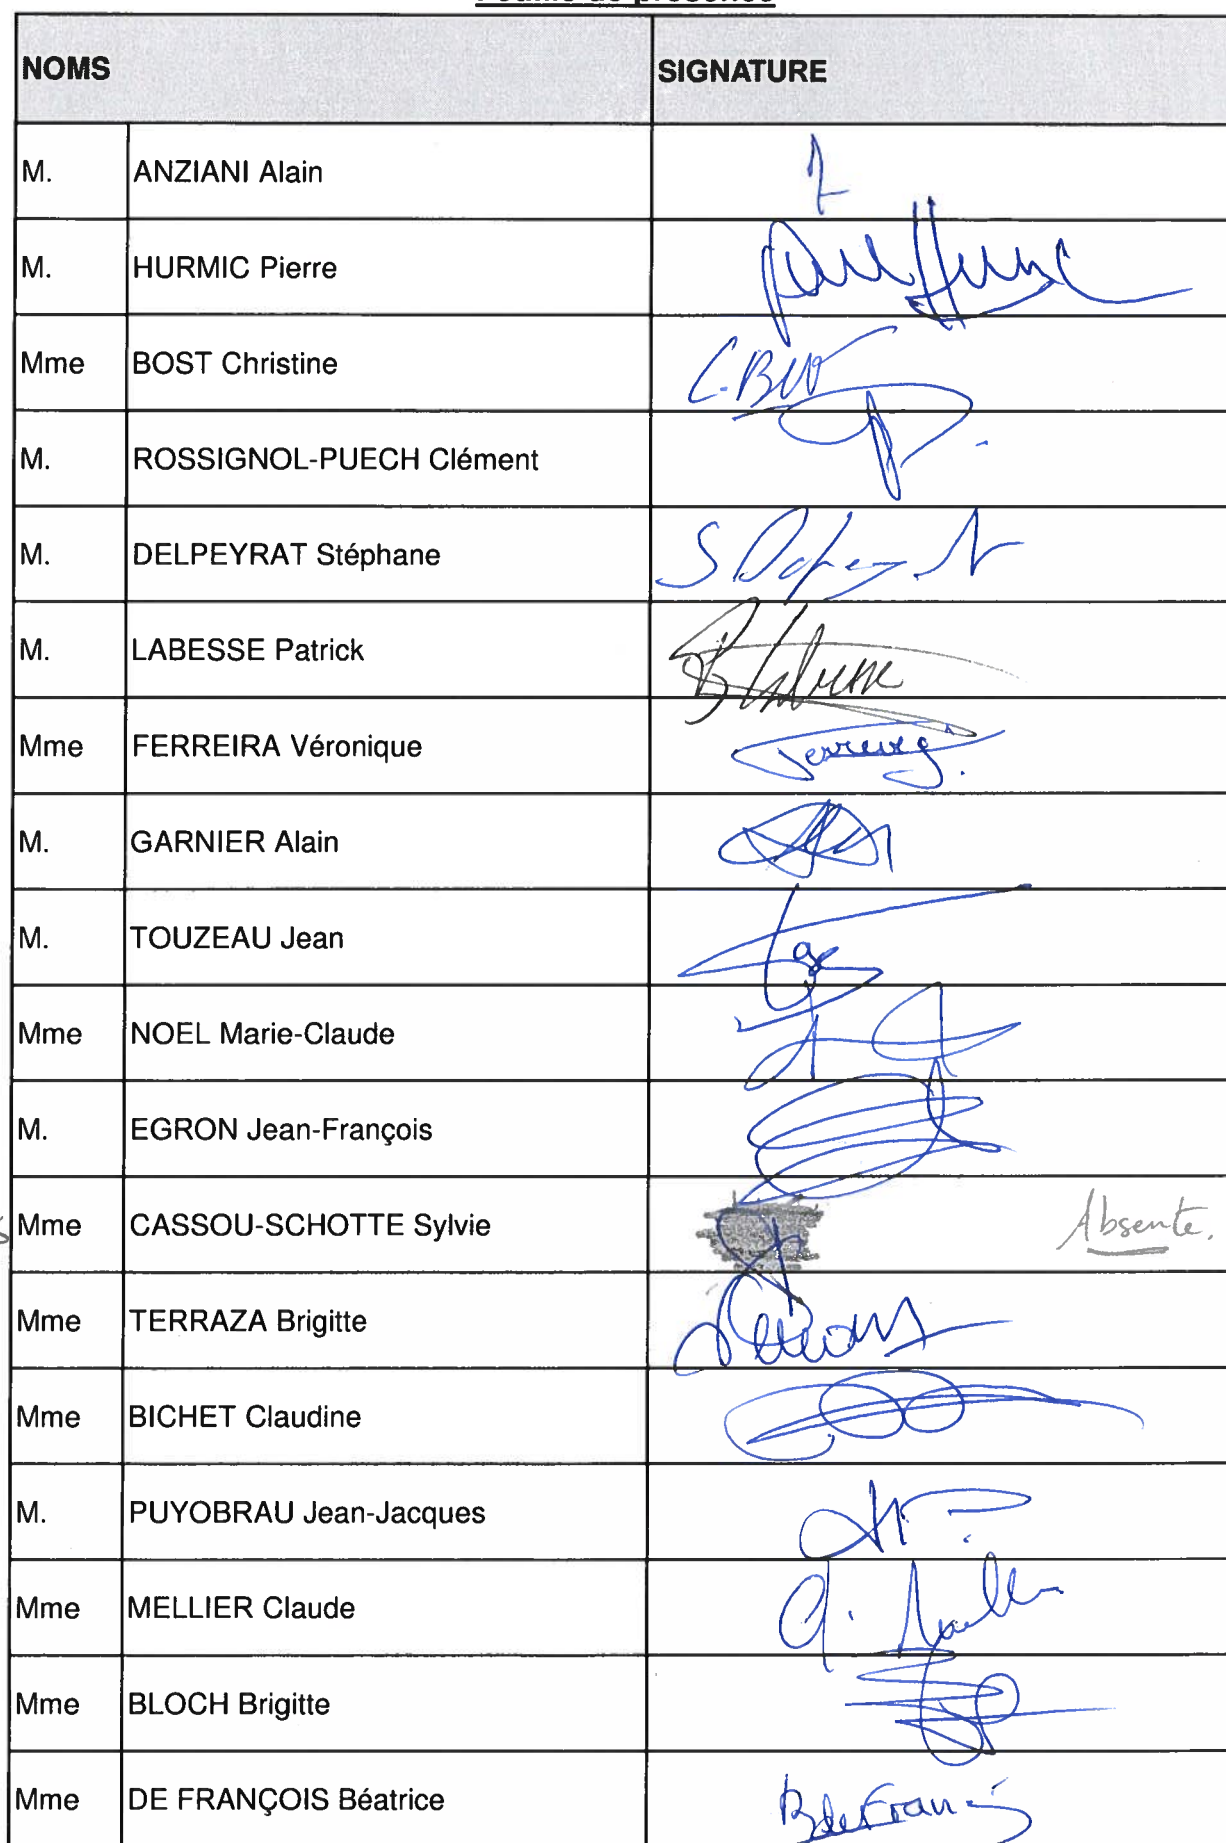 Feuille de présence
NOMS SIGNATURE
M. ANZIANI Alain
M. HURMIC Pierre
Mme BOST Christine
M. ROSSIGNOL-PUECH Clément
M. DELPEYRAT Stéphane
M. LABESSE Patrick
Mme FERREIRA Véronique
M. GARNIER Alain
M. TOUZEAU Jean
Mme NOEL Marie-Claude
M. EGRON Jean-François
Mme CASSOU-SCHOTTE Sylvie Absente.
Mme TERRAZA Brigitte
Mme BICHET Claudine
M. PUYOBRAU Jean-Jacques
Mme MELLIER Claude
Mme BLOCH Brigitte
Mme DE FRANÇOIS Béatrice